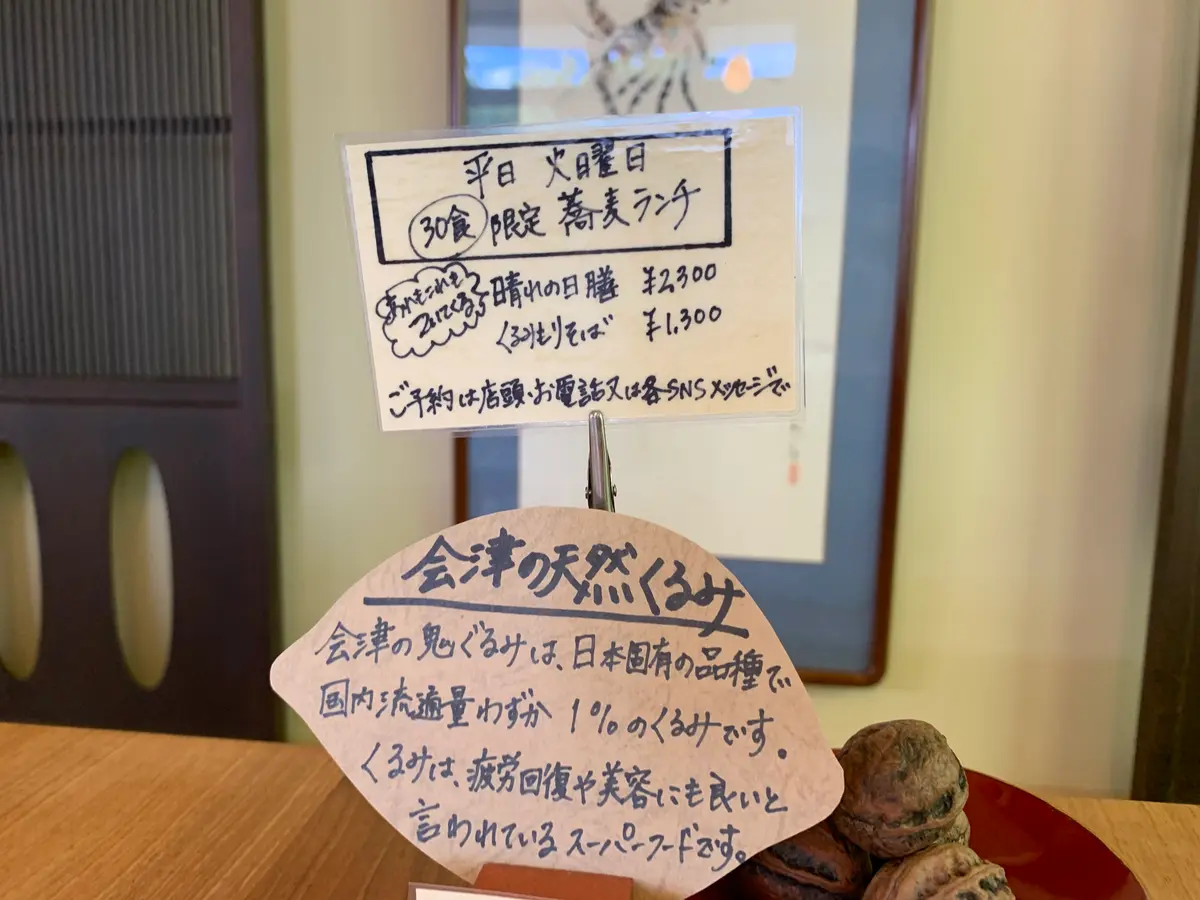 平日 火曜日
30食 限定 蕎麦ランチ
あれもこれも
ついてくる
晴れの日膳 ¥2,300
くるみもりそば ¥1,300
ご予約は店頭・お電話又は各SNSメッセージで
会津の天然くるみ
会津の鬼ぐるみは、日本固有の品種で
国内流適量わずか 1%のくるみです。
くるみは、疲労回復や美容にも良いと
言われているスーパーフードです。